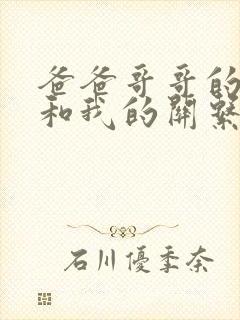 爸爸哥哥的
和我的關繫
石川優季奈